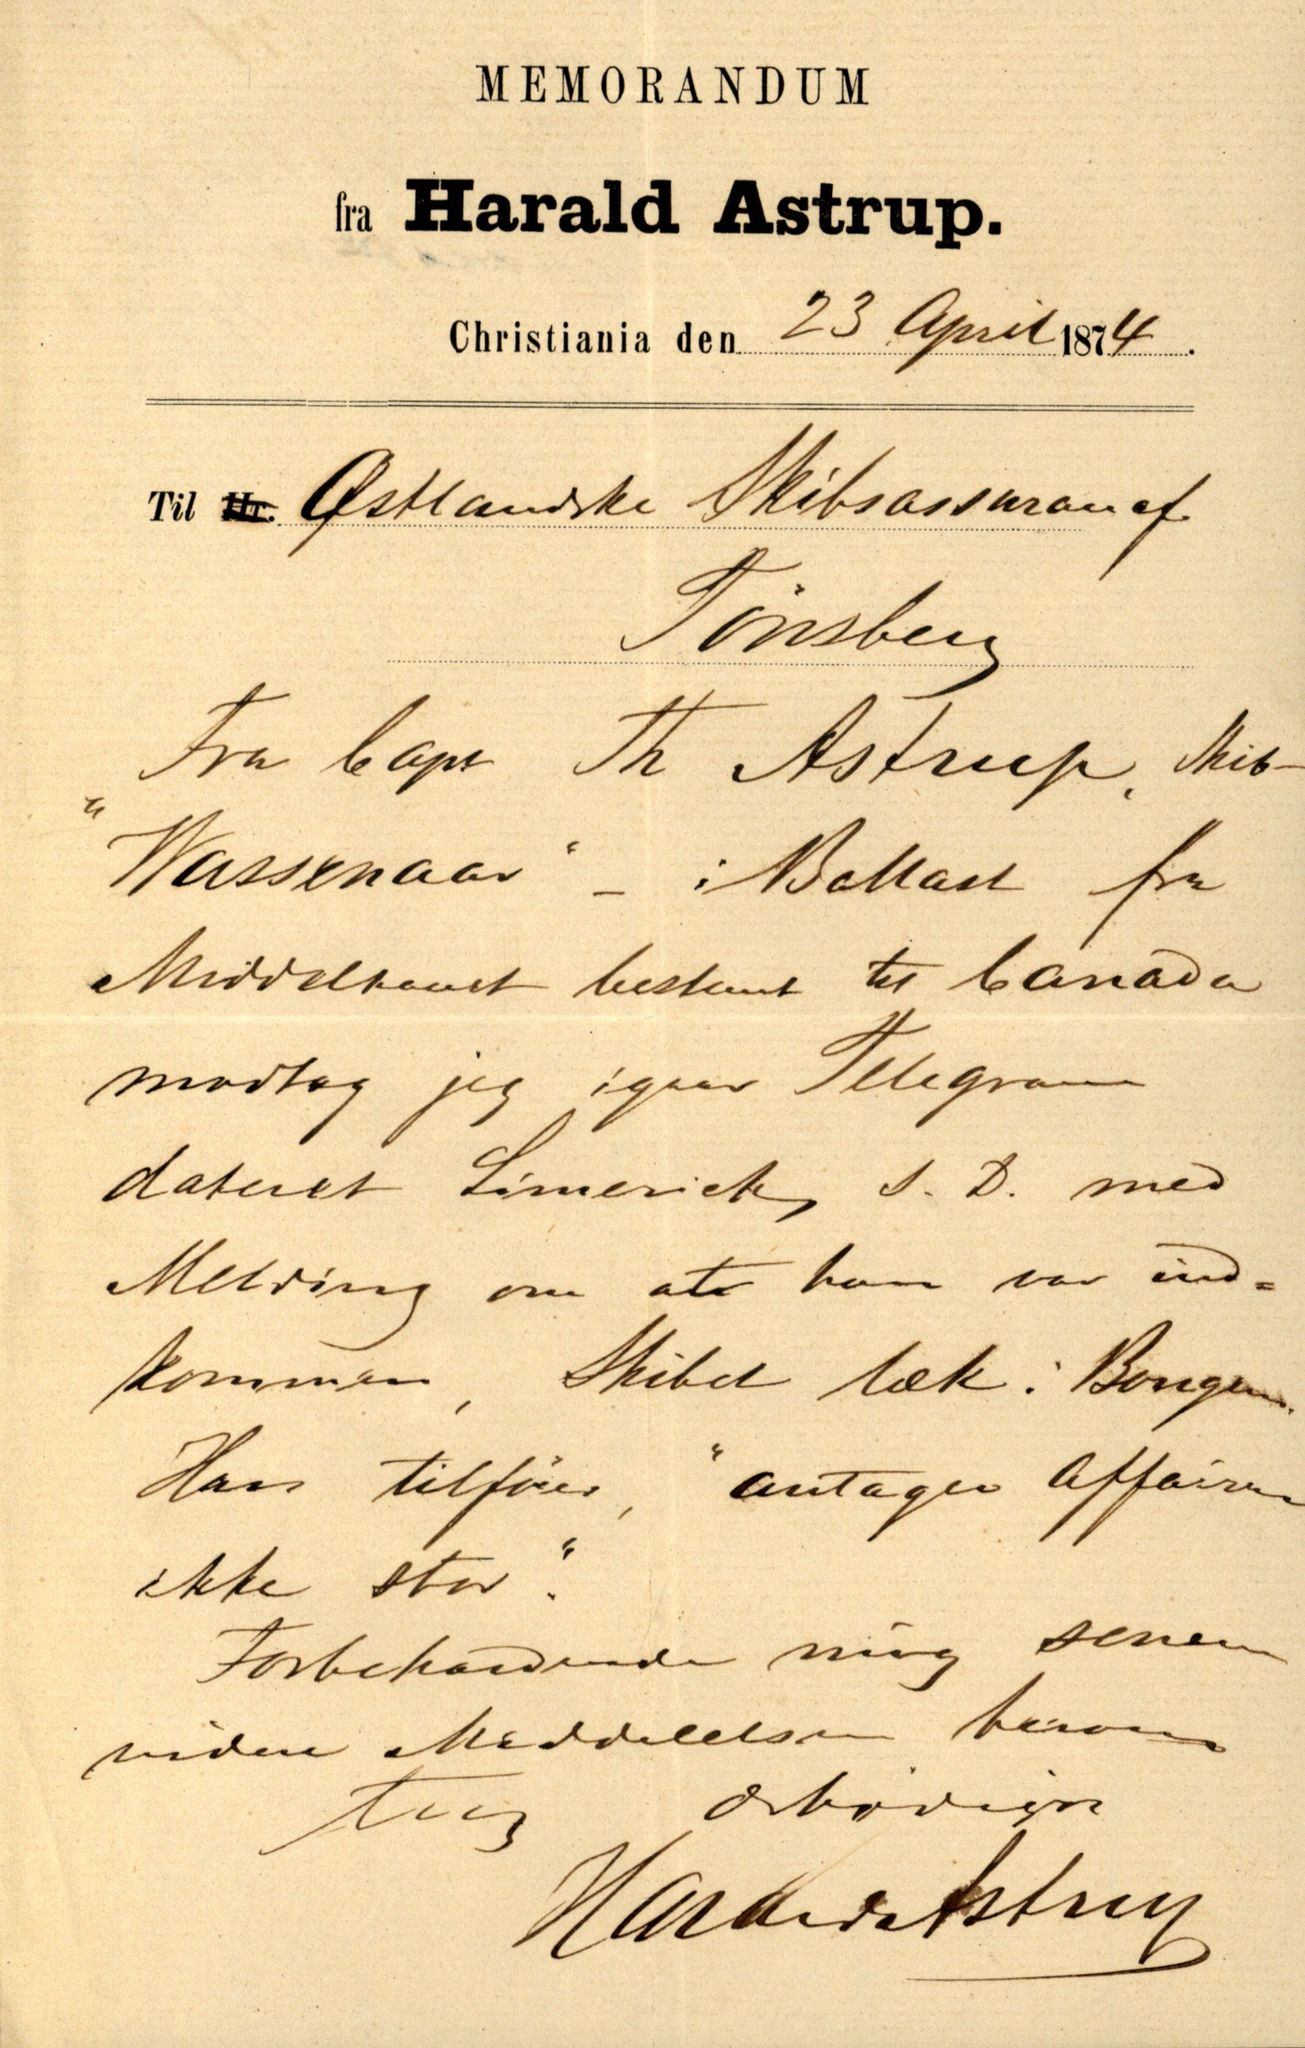 MEMORANDUM
fra Harald Astrup.
Christiania den 23 April 1874.
Til Hr. Østlandske Skibsassurancef.
Tönsberg
Fra Capt Th Astrup, Skib
"Wassenaar" - i Ballast fra
Middelhavet bestemt til Canada
modtog jeg igaar Telegram
dateret Limerick, S. D. med
Melding om at han var ind-
kommen, Skibet læk i Bougen.
Han tilföier, "antager Affairen
ikke stor".
Forbeholdende mig senere
videre Meddelelser herom
tegn ærbödigst
Harald Astrup